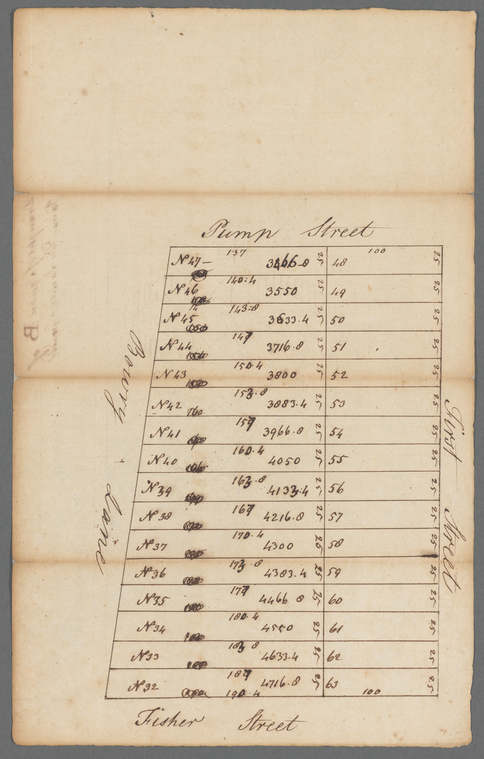 Pump Street
137 100
N 47 3466-8 25 48 25
140:4
N 46 3550 25 49 25
143:8
N 45 3633.4 25 50 25
147
N 44 3716.8 25 51 25
150.4
N 43 3800 25 52 25
153.8
N 42 160 3883.4 25 53 25
157
N 41 3966.8 25 54 25
160.4
N 40 4050 25 55 25
163.8
N 39 4133.4 25 56 25
167
N 38 4216.8 25 57 25
170.4
N 37 4300 25 58 25
173.8
N 36 4383.4 25 59 25
177
N 35 4466 8 25 60 25
180.4
N 34 4550 25 61 25
183 8
N 33 4633.4 25 62 25
187
N 32 4716.8 25 63 25
190 4 100
Bowry Lane
First Street
Fisher Street